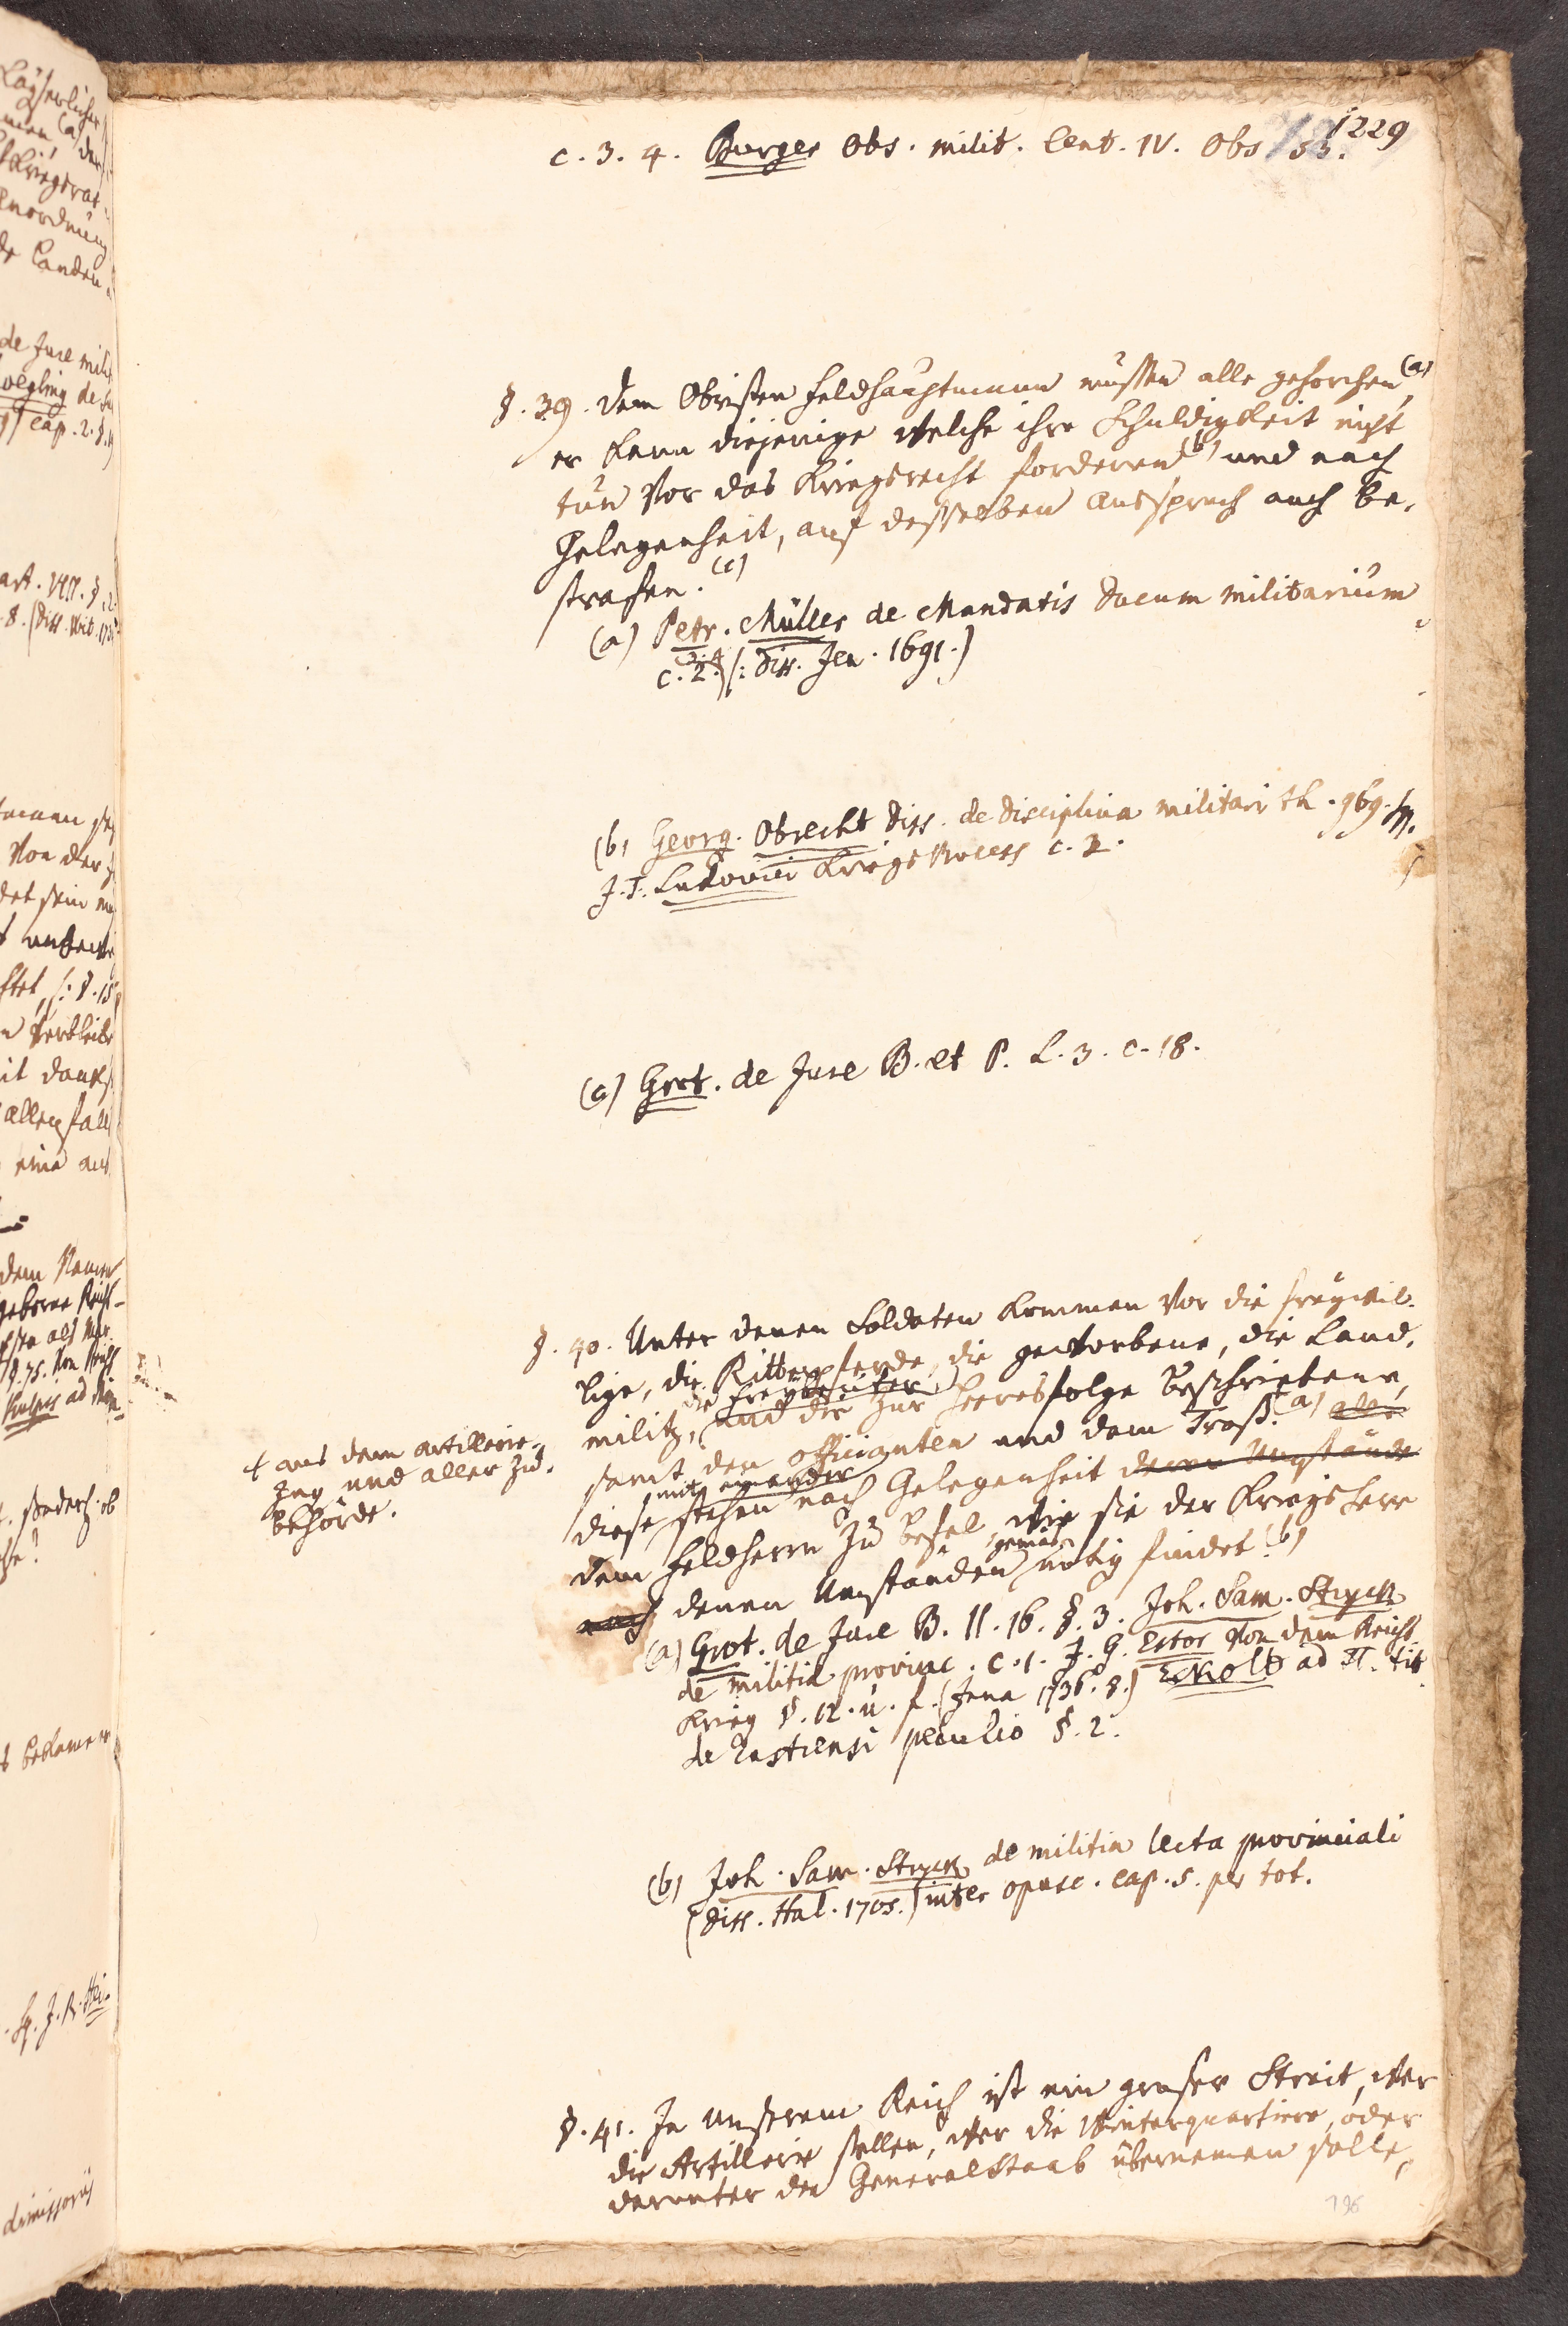 1229
c. 3. 4. Burger Obs. milit. Cent. IV. Obs 33.
§. 39. Dem Obristen Feldhauptmann müssen alle gehorchen, (a)
er kann diejenige welche ihre Schuldigkeit nicht
tun vor das Kriegsrecht forderen (b) und nach
Gelegenheit, auf desselben Ausspruch auch be-
strafen. (c)
(a) Petr. Müller de Mandatis Ducum militarium
c. 2. 3. 4. (: Diss. Jen. 1691.)
(b) Georg. Obrecht Diss. de Disciplina militari th. 969. sq.
J. F. Ludovici KriegsProcess c. 2.
(c) Grot. de Jure B. et P. L. 3. c. 18.
§. 40. Unter denen Soldaten kommen vor die freywil-
lige, die Ritterpferde, die geworbene, die Land-
militz, die Freybeuter und die zur Heeresfolge beschriebene,
samt den officianten und dem Troß. (a) aller
diese stehen mit einander nach Gelegenheit deren Umstände
dem Feldherrn zu Befel, wie sie der Kriegsherr
nach denen Umständen gemäs nötig findet. (b)
+ aus dem Artillerie-
Zug und aller Zu-
behörde.
(a) Grot. de Jure B. II. 16. §. 3. Joh. Sam. Stryck
de militia provinc. c. 1. J. G. Estor von dem Reichs
Krieg §. 12. u. f. (Jena 1736. 8.) Eckolt ad π. tit.
de Castrensi peculio §. 2.
(b) Joh. Sam. Stryck de militia lecta provinciali
(Diss. Hal. 1705.) inter opusc. cap. 5. per tot.
§. 41. In unserem Reich ist ein groser Streit, wer
die Artillerie stellen, wer die Winterquartiere, oder
darunter den GeneralStaab übernemen solle,
796